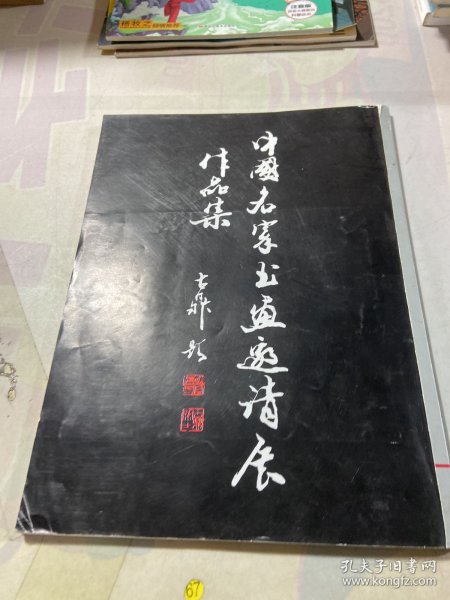 杨牧之
注音版
中國名家书画邀请展
作品集
鼎题
67
孔夫子旧书网
www.kongfz.com